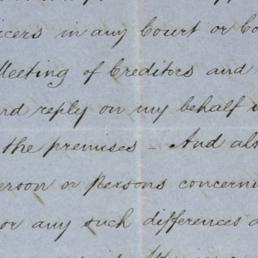 icers in any Court or Co
Meeting of Creditors and
nd reply on my behalf i
the premises - And als
erson or Persons concerni
or any such differences a